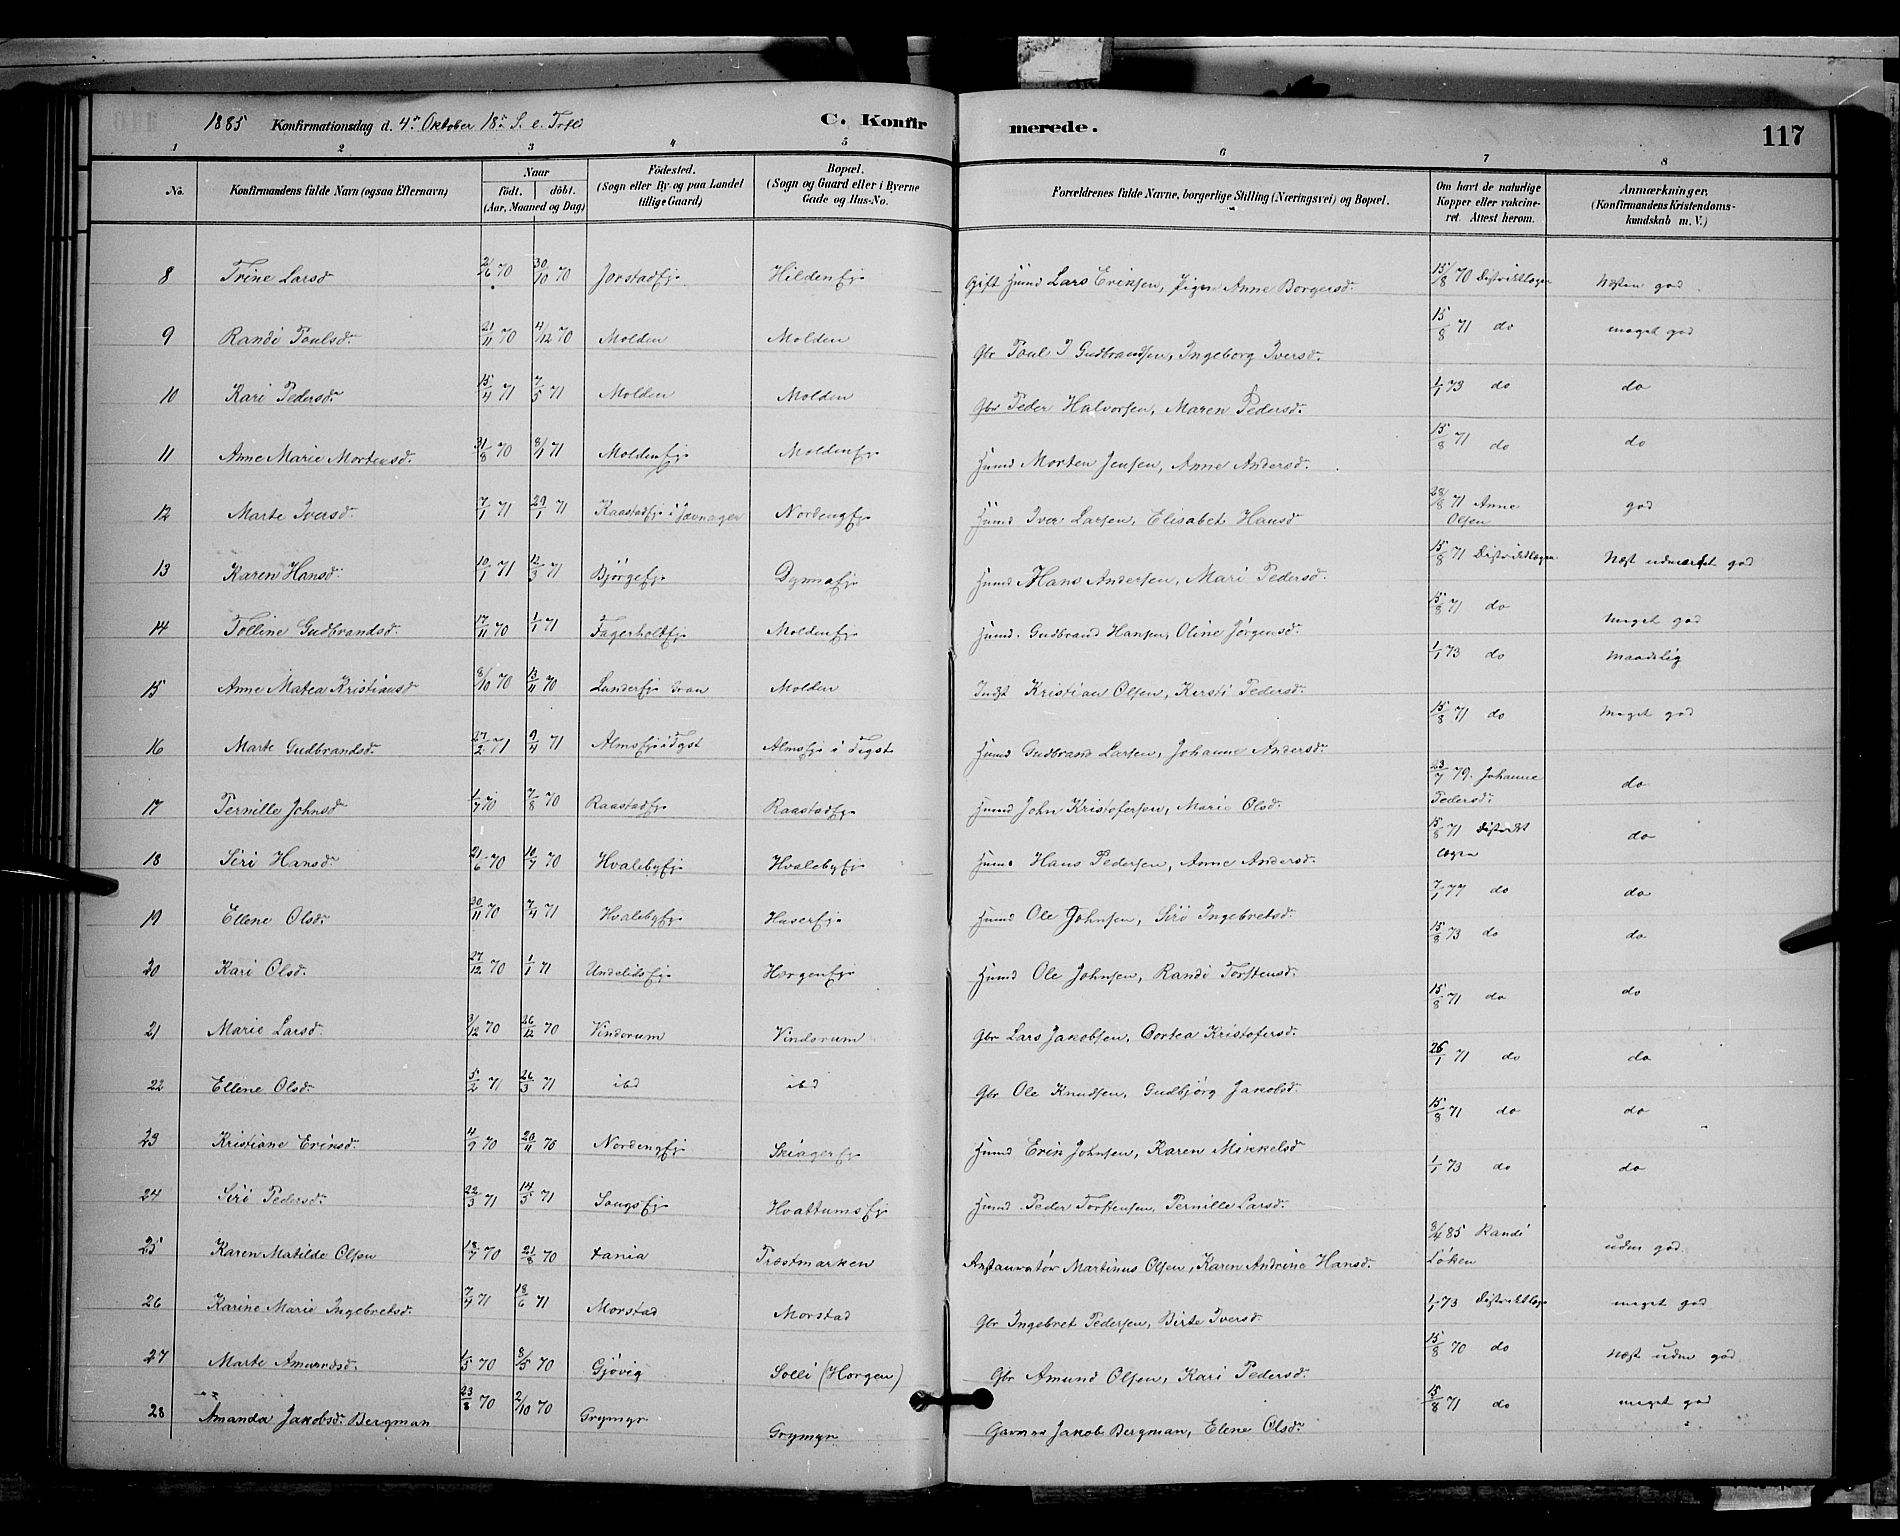 1885 Konfirmationsdag d. 4de Oktober 18de S. e. Trfi C. Konfir merede. 117
1 2 3 4 5 6 7 8
No. Konfirmandens fulde Navn (ogsaa Efternavn) Naar födt. döbt. (Aar, Maaned og Dag) Födested. (Sogn eller By og paa Landet tillige Gaard) Bopæl. (Sogn og Gaard eller i Byerne Gade og Hus-No. Forældrenes fulde Navne, borgerlige Stilling (Næringsvei) og Bopæl. Om havt de naturlige Kopper eller vakcineret. Attest herom. Anmærkninger. (Konfirmandens Kristendomskundskab m. V.)
8 Trine Larsd 2/6 70 30/10 70 Jorstadfj. Hildenfj. Gift Husmd Lars Eriksen, Pige Anne Borgersd. 15/8 70 Distriktlægen Næsten god
9 Randi Poulsd. 21/11 70 4/12 70 Molden Molden Gbr Poul I Gudbrandsen, Ingeborg Iversd. 15/8 71 do meget god
10 Kari Pedersd 15/4 71 7/5 71 Molden Molden Gbr Peder Halvorsen, Maren Pedersd. 1/1 73 do do
11 Anne Marie Mortensd. 31/8 70 8/1 71 Moldenfj. Moldenfj. Husmd Morten Jensen, Anne Andersd. 15/8 71 do do
12 Marte Iversd. 7/1 71 29/1 71 Raastadfj. i Jævnager Nordengfj. Husmd Iver Larsen, Elisabet Hansd 28/8 71 Anne Olsen god
13 Karen Hansd. 10/1 71 12/3 71 Bjørgefj. Dynnafj. Husmd Hans Andersen, Mari Pedersd. 15/8 71 Distriktlægen Næst udmærket god
14 Tolline Gudbrandsd. 17/11 70 1/1 71 Fagerholtfj. Moldenfj. Husmd. Gudbrand Hansen, Oline Jørgensd. 15/8 71 do meget god
15 Anne Matea Kristiansd 8/10 70 13/11 70 Lunderfj. Gran Molden Indst Kristian Olsen, Kersti Pedersd. 1/1 73 do maadelig
16 Marte Gudbrandsd. 27/2 71 9/4 71 Almsfj. i Tgst Almsfj. i Tigst Husmd Gudbrand Larsen, Johanne Andersd. 15/8 71 do meget god
17 Pernille Johnsd 1/7 70 7/8 70 Raastadfj. Raastadfj. Husmd John Kristofersen, Marie Olsd. 23/7 79. Johanne Pedersd. do
18 Siri Hansd. 21/6 70 10/7 70 Hvalebyfj. Hvalebyfj. Husmd Hans Pedersen, Anne Andersd. 15/8 71 Distriktlægen do
19 Ellene Olsd. 30/11 70 7/4 71 Hvalebyfj. Huserfj. Husmd Ole Johnsen, Siri Ingebretsd. 7/1 77 do do
20 Kari Olsd. 27/12 70 1/1 71 Undelidsfj. Horgenfj. Husmd Ole Johnsen, Randi Torstensd. 15/8 73 do do
21 Marie Larsd. 3/12 70 26/12 70 Vindorum Vindorum Gbr Lars Jakobsen, Dortea Kristofersd. 15/8 71 do do
22 Ellene Olsd. 5/2 71 26/3 71 ibd ibd Gbr Ole Knudsen, Gudbjörg Jakobsd. 26/1 71 do do
23 Kristiane Eriksd. 4/9 70 20/11 70 Nordengfj. Skiagerfj. Husmd Erik Johnsen, Karen Mikkelsd 15/8 71 do do
24 Siri Pedersd. 22/3 71 14/5 71 Sangsfj. Hvattumsfj. Husmd. Peder Torstensen, Pernille Larsd. 1/1 73 do do
25 Karen Matilde Olsen 18/7 70 21/8 70 Xania Præstmarken Restauratør Martinus Olsen, Karen Andrine Hansd. 8/4 85 Randi Løken udm god.
26 Karine Marie Ingebretsd. 7/4 71 18/6 71 Morstad Morstad Gbr Ingebret Pedersen, Birte Iversd. 1/1 73 Distriktlægen meget god
27 Marte Amundsd. 1/5 70 8/5 70 Gjövig Solli (Horgen) Gbr Amund Olsen, Kari Pedersd. 15/8 70 do Næst udm god
28 Amanda Jakobsd. Bergman 23/8 70 2/10 70 Grymyr Grymyr Garver Jakob Bergman, Elene Olsd. 15/8 71 do meget god